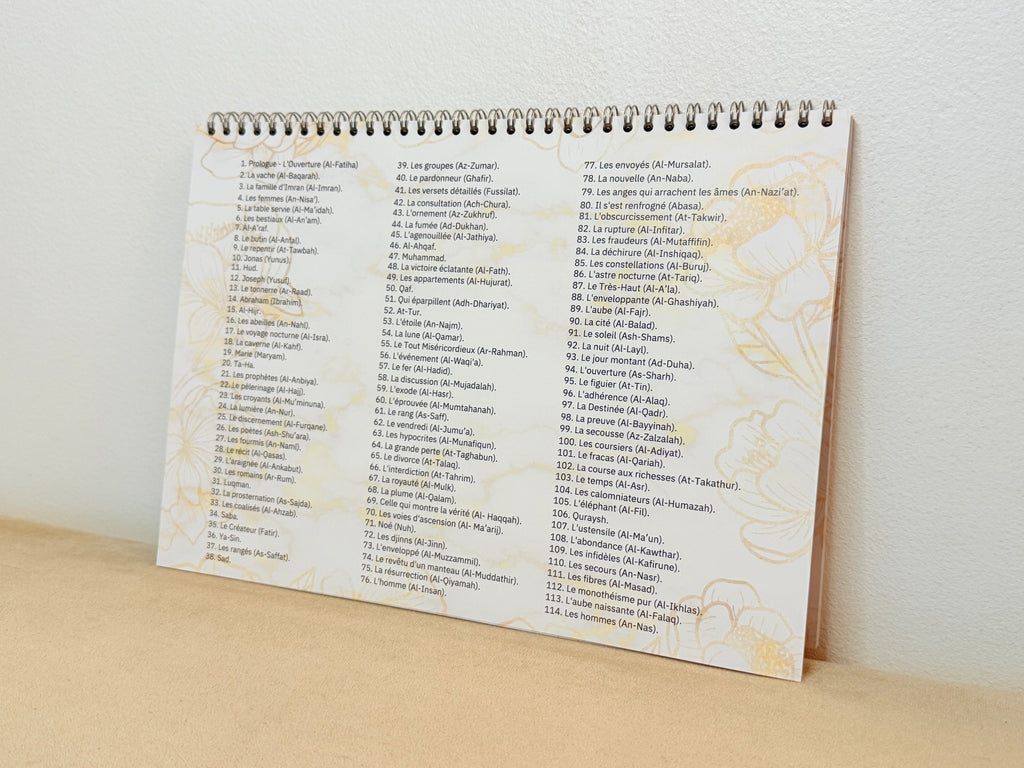 1. Prologue - L'Ouverture (Al-Fatiha)
2. La vache (Al-Baqarah).
3. La famille d'Imran (Al-Imran).
4. Les femmes (An-Nisa').
5. La table servie (Al-Ma'idah).
6. Les bestiaux (An-An'am).
7. Al-A'raf.
8. Le butin (Al-Anfal).
9. Le repentir (At-Tawbah).
10. Jonas (Yunus).
11. Hud.
12. Joseph (Yusuf).
13. Le tonnerre (Ar-Raad).
14. Abraham (Ibrahim).
15. Al-Hijr.
16. Les abeilles (An-Nahl).
17. Le voyage nocturne (Al-Isra).
18. La caverne (Al-Kahf).
19. Marie (Maryam).
20. Ta-Ha.
21. Les prophètes (Al-Anbiya).
22. Le pèlerinage (Al-Hajj).
23. Les croyants (Al-Mu'minuna).
24. La lumière (An-Nur).
25. Le discernement (Al-Furqane).
26. Les poètes (Ash-Shu'ara).
27. Les fourmis (An-Naml).
28. Le récit (Al-Qasas).
29. L'araignée (Al-Ankabut).
30. Les romains (Ar-Rum).
31. Luqman.
32. La prosternation (As-Sajda).
33. Les coalisés (Al-Ahzab).
34. Saba.
35. Le Créateur (Fatir).
36. Ya-Sin.
37. Les rangés (As-Saffat).
38. Sad.
39. Les groupes (Az-Zumar).
40. Le pardonneur (Ghafir).
41. Les versets détaillés (Fussilat).
42. La consultation (Ach-Chura).
43. L'ornement (Az-Zukhruf).
44. La fumée (Ad-Dukhan).
45. L'agenouillée (Al-Jathiya).
46. Al-Ahqaf.
47. Muhammad.
48. La victoire éclatante (Al-Fath).
49. Les appartements (Al-Hujurat).
50. Qaf.
51. Qui éparpillent (Adh-Dhariyat).
52. At-Tur.
53. L'étoile (An-Najm).
54. La lune (Al-Qamar).
55. Le Tout Miséricordieux (Ar-Rahman).
56. L'événement (Al-Waqi'a).
57. Le fer (Al-Hadid).
58. La discussion (Al-Mujadalah).
59. L'exode (Al-Hasr).
60. L'éprouvée (Al-Mumtahanah).
61. Le rang (As-Saff).
62. Le vendredi (Al-Jumu'a).
63. Les hypocrites (Al-Munafiqun).
64. La grande perte (At-Taghabun).
65. Le divorce (At-Talaq).
66. L'interdiction (At-Tahrim).
67. La royauté (Al-Mulk).
68. La plume (Al-Qalam).
69. Celle qui montre la vérité (Al- Haqqah).
70. Les voies d'ascension (Al- Ma'arij).
71. Noé (Nuh).
72. Les djinns (Al-Jinn).
73. L'enveloppé (Al-Muzzammil).
74. Le revêtu d'un manteau (Al-Muddathir).
75. La résurrection (Al-Qiyamah).
76. L'homme (Al-Insan).
77. Les envoyés (Al-Mursalat).
78. La nouvelle (An-Naba).
79. Les anges qui arrachent les âmes (An-Nazi'at).
80. Il s'est renfrogné (Abasa).
81. L'obscurcissement (At-Takwir).
82. La rupture (Al-Infitar).
83. Les fraudeurs (Al-Mutaffifin).
84. La déchirure (Al-Inshiqaq).
85. Les constellations (Al-Buruj).
86. L'astre nocturne (At-Tariq).
87. Le Très-Haut (Al-A'la).
88. L'enveloppante (Al-Ghashiyah).
89. L'aube (Al-Fajr).
90. La cité (Al-Balad).
91. Le soleil (Ash-Shams).
92. La nuit (Al-Layl).
93. Le jour montant (Ad-Duha).
94. L'ouverture (As-Sharh).
95. Le figuier (At-Tin).
96. L'adhérence (Al-Alaq).
97. La Destinée (Al-Qadr).
98. La preuve (Al-Bayyinah).
99. La secousse (Az-Zalzalah).
100. Les coursiers (Al-Adiyat).
101. Le fracas (Al-Qariah).
102. La course aux richesses (At-Takathur).
103. Le temps (Al-Asr).
104. Les calomniateurs (Al-Humazah).
105. L'éléphant (Al-Fil).
106. Quraysh.
107. L'ustensile (Al-Ma'un).
108. L'abondance (Al-Kawthar).
109. Les infidèles (Al-Kafirune).
110. Les secours (An-Nasr).
111. Les fibres (Al-Masad).
112. Le monothéisme pur (Al-Ikhlas).
113. L'aube naissante (Al-Falaq).
114. Les hommes (An-Nas).